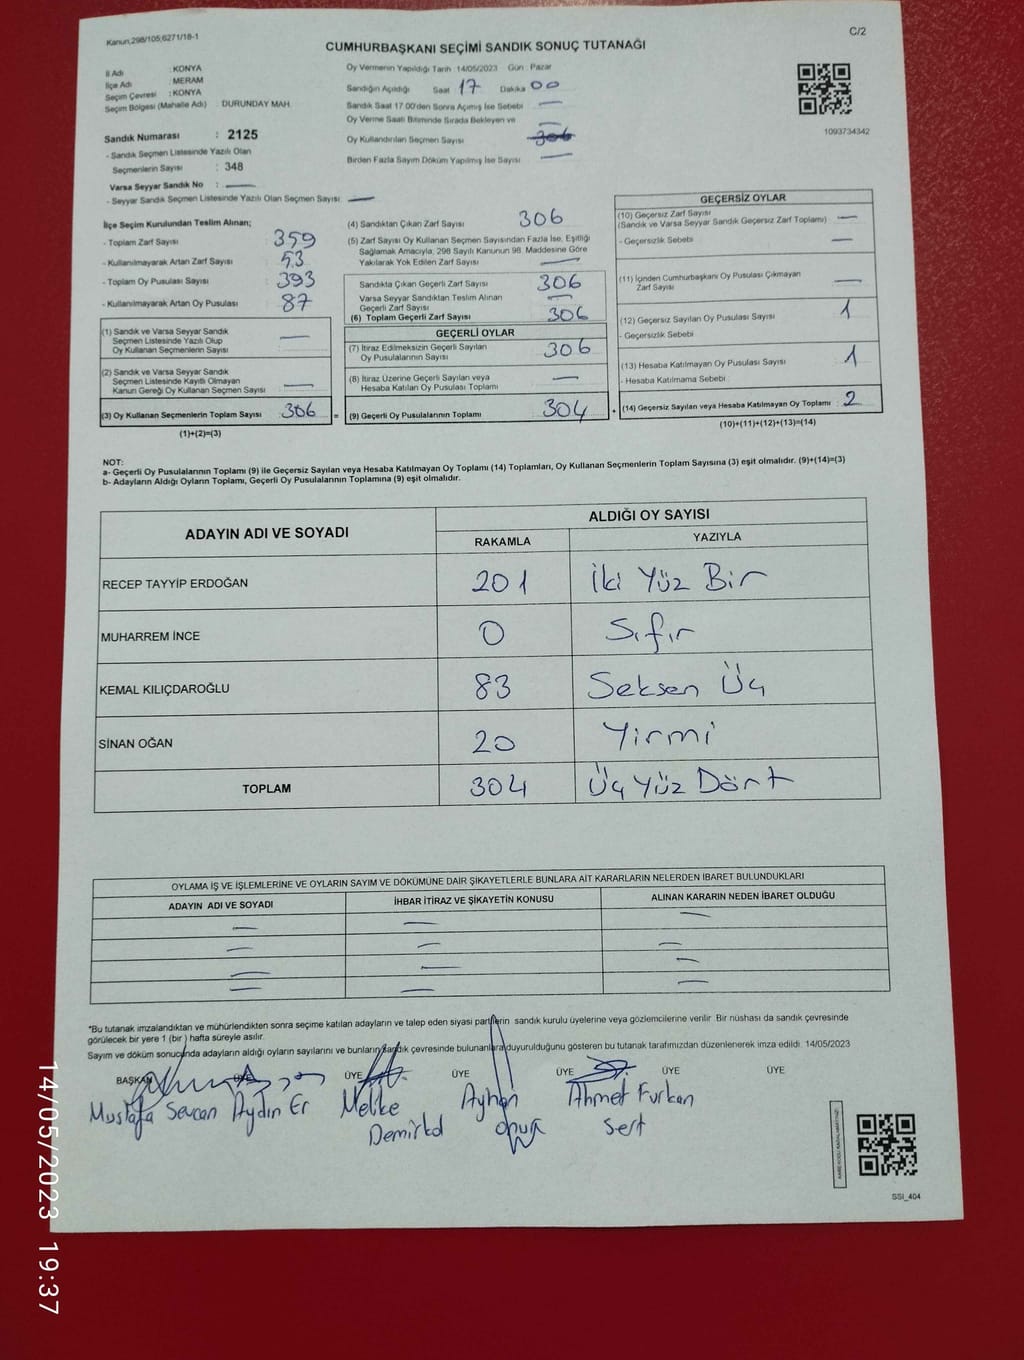 Kanun,298/105;6271/18-1
C/2
CUMHURBAŞKANI SEÇİMİ SANDIK SONUÇ TUTANAĞI
İl Adı : KONYA
İlçe Adı : MERAM
Seçim Çevresi : KONYA
Seçim Bölgesi (Mahalle Adı) : DURUNDAY MAH.
Sandık Numarası : 2125
- Sandık Seçmen Listesinde Yazılı Olan
Seçmenlerin Sayısı : 348
Varsa Seyyar Sandık No : —
- Seyyar Sandık Seçmen Listesinde Yazılı Olan Seçmen Sayısı : —
Oy Vermenin Yapıldığı Tarih 14/05/2023 Gün : Pazar
Sandığın Açıldığı Saat 17 Dakika 00
Sandık Saat 17.00'den Sonra Açımış İse Sebebi —
Oy Verme Saati Bitiminde Sırada Bekleyen ve —
Oy Kullandırılan Seçmen Sayısı 306
Birden Fazla Sayım Döküm Yapılmış İse Sayısı —
1093734342
İlçe Seçim Kurulundan Teslim Alınan;
- Toplam Zarf Sayısı : 359
- Kullanılmayarak Artan Zarf Sayısı : 53
- Toplam Oy Pusulası Sayısı : 393
- Kullanılmayarak Artan Oy Pusulası : 87
(1) Sandık ve Varsa Seyyar Sandık
Seçmen Listesinde Yazılı Olup
Oy Kullanan Seçmenlerin Sayısı —
(2) Sandık ve Varsa Seyyar Sandık
Seçmen Listesinde Kayıtlı Olmayan
Kanun Gereği Oy Kullanan Seçmen Sayısı —
(3) Oy Kullanan Seçmenlerin Toplam Sayısı 306 =
(1)+(2)=(3)
(4) Sandıktan Çıkan Zarf Sayısı 306
(5) Zarf Sayısı Oy Kullanan Seçmen Sayısından Fazla İse, Eşitliği
Sağlamak Amacıyla, 298 Sayılı Kanunun 98. Maddesine Göre
Yakılarak Yok Edilen Zarf Sayısı —
Sandıkta Çıkan Geçerli Zarf Sayısı 306
Varsa Seyyar Sandıktan Teslim Alınan
Geçerli Zarf Sayısı —
(6) Toplam Geçerli Zarf Sayısı 306
GEÇERLİ OYLAR
(7) İtiraz Edilmeksizin Geçerli Sayılan
Oy Pusulalarının Sayısı 306
(8) İtiraz Üzerine Geçerli Sayılan veya
Hesaba Katılan Oy Pusulası Toplamı —
(9) Geçerli Oy Pusulalarının Toplamı 304 +
GEÇERSİZ OYLAR
(10) Geçersiz Zarf Sayısı
(Sandık ve Varsa Seyyar Sandık Geçersiz Zarf Toplamı) —
- Geçersizlik Sebebi —
(11) İçinden Cumhurbaşkanı Oy Pusulası Çıkmayan
Zarf Sayısı —
(12) Geçersiz Sayılan Oy Pusulası Sayısı 1
- Geçersizlik Sebebi
(13) Hesaba Katılmayan Oy Pusulası Sayısı 1
- Hesaba Katılmama Sebebi
(14) Geçersiz Sayılan veya Hesaba Katılmayan Oy Toplamı : 2
(10)+(11)+(12)+(13)=(14)
NOT:
a- Geçerli Oy Pusulalarının Toplamı (9) ile Geçersiz Sayılan veya Hesaba Katılmayan Oy Toplamı (14) Toplamları, Oy Kullanan Seçmenlerin Toplam Sayısına (3) eşit olmalıdır. (9)+(14)=(3)
b- Adayların Aldığı Oyların Toplamı, Geçerli Oy Pusulalarının Toplamına (9) eşit olmalıdır.
ADAYIN ADI VE SOYADI
ALDIĞI OY SAYISI
RAKAMLA YAZIYLA
RECEP TAYYİP ERDOĞAN 201 İki Yüz Bir
MUHARREM İNCE 0 Sıfır
KEMAL KILIÇDAROĞLU 83 Seksen Üç
SİNAN OĞAN 20 Yirmi
TOPLAM 304 Üç Yüz Dört
OYLAMA İŞ VE İŞLEMLERİNE VE OYLARIN SAYIM VE DÖKÜMÜNE DAİR ŞİKAYETLERLE BUNLARA AİT KARARLARIN NELERDEN İBARET BULUNDUKLARI
ADAYIN ADI VE SOYADI İHBAR İTİRAZ VE ŞİKAYETİN KONUSU ALINAN KARARIN NEDEN İBARET OLDUĞU
— — —
— — —
— — —
— — —
*Bu tutanak imzalandıktan ve mühürlendikten sonra seçime katılan adayların ve talep eden siyasi partilerin sandık kurulu üyelerine veya gözlemcilerine verilir. Bir nüshası da sandık çevresinde
görülecek bir yere 1 (bir) hafta süreyle asılır.
Sayım ve döküm sonucunda adayların aldığı oyların sayılarını ve bunların sandık çevresinde bulunanlara duyurulduğunu gösteren bu tutanak tarafımızdan düzenlenerek imza edildi. 14/05/2023
BAŞKAN ÜYE ÜYE ÜYE ÜYE ÜYE ÜYE
Mustafa Sevcan Aydın Er Melike Ayhan Ahmet Furkan
Sert
SSI_404
14/05/2023 19:37